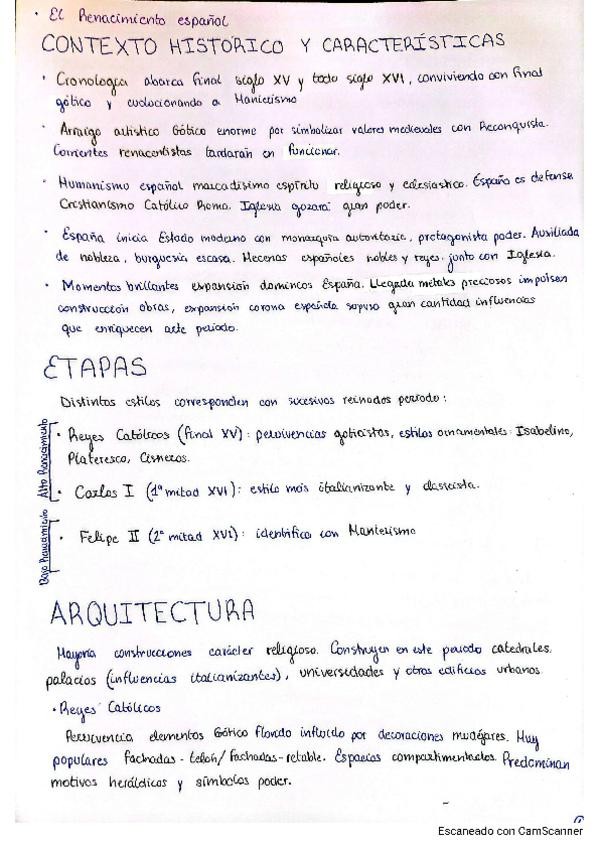 • El Renacimiento español
CONTEXTO HISTÓRICO Y CARACTERÍSTICAS
• Cronología abarca final siglo XV y todo siglo XVI, conviviendo con final
gótico y evolucionando a Manierismo
• Arraigo artístico Gótico enorme por simbolizar valores medievales con Reconquista.
Corrientes renacentistas tardarán en funcionar.
• Humanismo español marcadísimo espíritu religioso y eclesiástico. España es defensa
Cristianismo Católico Roma. Iglesia gozará gran poder.
• España inicia Estado moderno con monarquía autoritaria, protagonista poder. Auxiliada
de nobleza, burguesía escasa. Mecenas españoles nobles y reyes junto con Iglesia.
• Momentos brillantes expansión dominios España. Llegada metales preciosos impulsan
construcción obras, expansión corona española supuso gran cantidad influencias
que enriquecen arte periodo.
ETAPAS
Distintos estilos corresponden con sucesivos reinados periodo:
Alto Renacimiento
• Reyes Católicos (final XV): pervivencias goticistas, estilos ornamentales: Isabelino,
Plateresco, Cisneros.
• Carlos I (1ª mitad XVI): estilo más italianizante y clasicista.
Bajo Renacimiento
• Felipe II (2ª mitad XVI): identifica con Manierismo
ARQUITECTURA
Mayoría construcciones carácter religioso. Construyen en este periodo catedrales,
palacios (influencias italianizantes), universidades y otros edificios urbanos
• Reyes Católicos
Pervivencia elementos Gótico Florido influido por decoraciones mudéjares. Muy
populares fachadas-telón/fachadas-retable. Espacios compartimentados. Predominan
motivos heráldicos y símbolos poder.
Escaneado con CamScanner